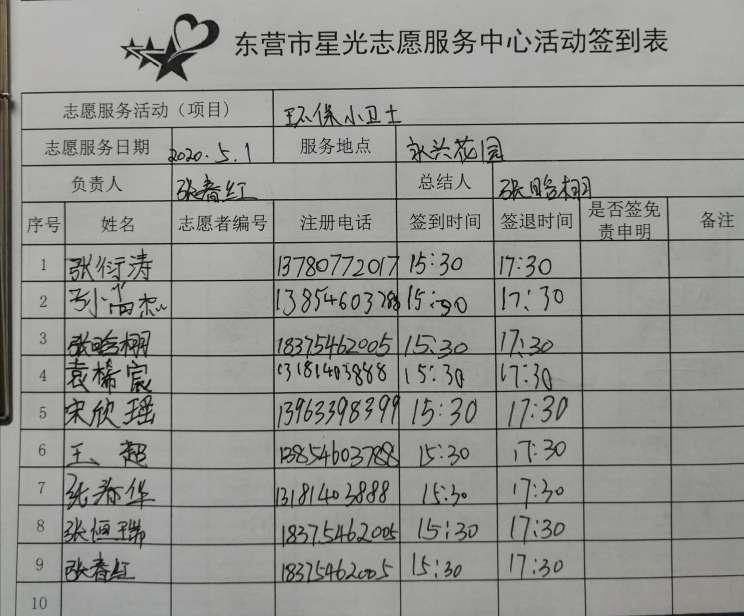 东营市星光志愿服务中心活动签到表
志愿服务活动（项目） 环保小卫士
志愿服务日期 2020.5.1 服务地点 永兴花园
负责人 张春红 总结人 张晗栩
序号 姓名 志愿者编号 注册电话 签到时间 签退时间 是否签免责申明 备注
1 张衍涛 13780772017 15:30 17:30
2 13854603788 15:30 17:30
3 张晗栩 18375462005 15:30 17:30
4 袁梯宸 13181403888 15:30 17:30
5 宋欣瑶 13963398399 15:30 17:30
6 王超 13854603788 15:30 17:30
7 张春华 13181403888 15:30 17:30
8 张恒瑞 18375462005 15:30 17:30
9 张春红 18375462005 15:30 17:30
10